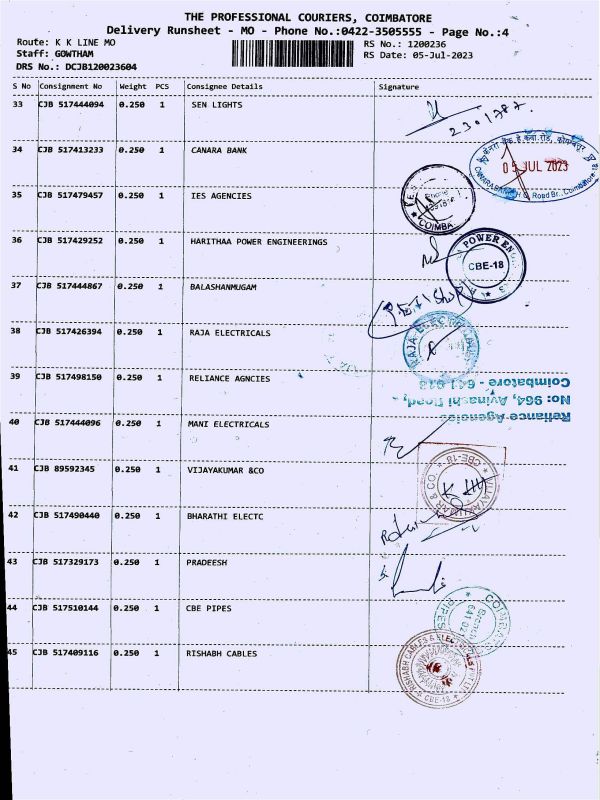 THE PROFESSIONAL COURIERS, COIMBATORE
Delivery Runsheet - MO - Phone No.:0422-3505555 - Page No.:4
Route: K K LINE MO RS No.: 1200236
Staff: GOWTHAM RS Date: 05-Jul-2023
DRS No.: DCJB120023604
S No Consignment No Weight PCS Consignee Details Signature
33 CJB 517444094 0.250 1 SEN LIGHTS
2301787.
34 CJB 517413233 0.250 1 CANARA BANK
05 JUL 2023
35 CJB 517479457 0.250 1 IES AGENCIES
COIMBA
36 CJB 517429252 0.250 1 HARITHAA POWER ENGINEERINGS
POWER EN
CBE-18
37 CJB 517444867 0.250 1 BALASHANMUGAM
38 CJB 517426394 0.250 1 RAJA ELECTRICALS
RAJA
39 CJB 517498150 0.250 1 RELIANCE AGNCIES
Reliance Agencies
No: 964, Avinashi Road,
Coimbatore - 641 018
40 CJB 517444096 0.250 1 MANI ELECTRICALS
41 CJB 89592345 0.250 1 VIJAYAKUMAR &CO
VIJAYAKUMAR & CO. CBE-18
42 CJB 517490440 0.250 1 BHARATHI ELECTC
43 CJB 517329173 0.250 1 PRADEESH
44 CJB 517510144 0.250 1 CBE PIPES
PIPES
45 CJB 517409116 0.250 1 RISHABH CABLES
RISHABH CABLES &
CBE-18